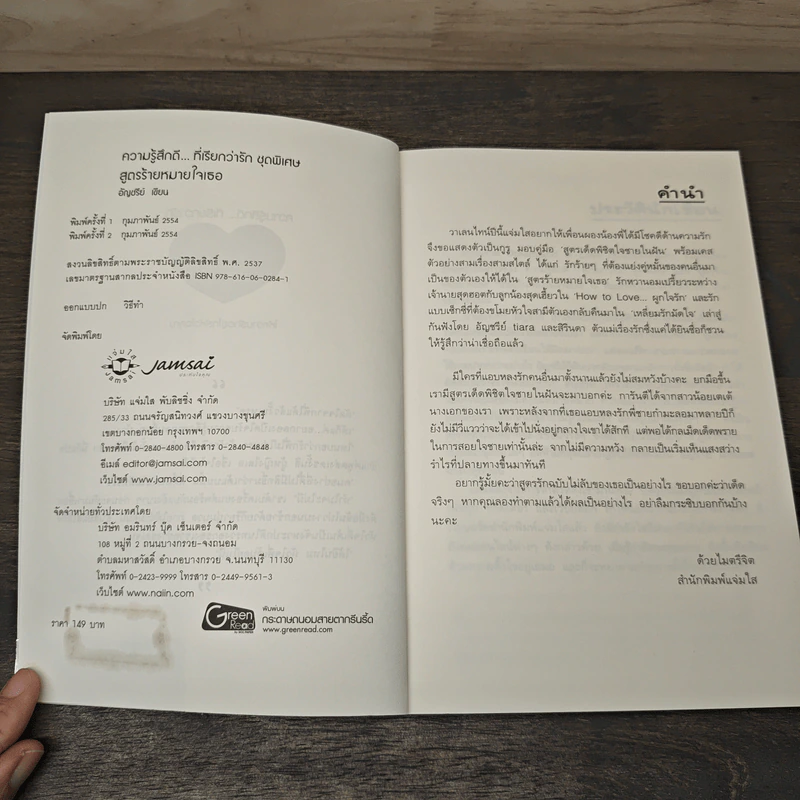 ความรู้สึกดี... ที่เรียกว่ารัก ชุดพิเศษ
สูตรร้ายหมายใจเธอ
อัญชรีย์ เขียน
พิมพ์ครั้งที่ 1 กุมภาพันธ์ 2554
พิมพ์ครั้งที่ 2 กุมภาพันธ์ 2554
สงวนลิขสิทธิ์ตามพระราชบัญญัติลิขสิทธิ์ พ.ศ. 2537
เลขมาตรฐานสากลประจำหนังสือ ISBN 978-616-06-0284-1
ออกแบบปก วิธีทำ
จัดพิมพ์โดย
แจ่มใส
Jamsai
Jamsai
บริษัท แจ่มใส พับลิชชิ่ง จำกัด
285/33 ถนนจรัญสนิทวงศ์ แขวงบางขุนศรี
เขตบางกอกน้อย กรุงเทพฯ 10700
โทรศัพท์ 0-2840-4800 โทรสาร 0-2840-4848
อีเมล์ editor@jamsai.com
เว็บไซต์ www.jamsai.com
จัดจำหน่ายทั่วประเทศโดย
บริษัท อมรินทร์ บุ๊ค เซ็นเตอร์ จำกัด
108 หมู่ที่ 2 ถนนบางกรวย-จงถนอม
ตำบลมหาสวัสดิ์ อำเภอบางกรวย จ.นนทบุรี 11130
โทรศัพท์ 0-2423-9999 โทรสาร 0-2449-9561-3
เว็บไซต์ www.naiin.com
ราคา 149 บาท
Green Read
พิมพ์บน
กระดาษถนอมสายตากรีนรี้ด
www.greenread.com
คำนำ
วาเลนไทน์ปีนี้แจ่มใสอยากให้เพื่อนผองน้องพี่ได้มีโชคดีด้านความรัก
จึงขอแสดงตัวเป็นกูรู มอบคู่มือ 'สูตรเด็ดพิชิตใจชายในฝัน' พร้อมเคส
ตัวอย่างสามเรื่องสามสไตล์ ได้แก่ รักร้ายๆ ที่ต้องแย่งคู่หมั้นของคนอื่นมา
เป็นของตัวเองให้ได้ใน 'สูตรร้ายหมายใจเธอ' รักหวานอมเปรี้ยวระหว่าง
เจ้านายสุดฮอตกับลูกน้องสุดเฮี้ยวใน 'How to Love... ผูกใจรัก' และรัก
แบบเซ็กซี่ที่ต้องขโมยหัวใจสามีตัวเองกลับคืนมาใน 'เหลี่ยมรักมัดใจ' เล่าสู่
กันฟังโดย อัญชรีย์ tiara และสิรินดา ตัวแม่เรื่องรักซึ่งแค่ได้ยินชื่อก็ชวน
ให้รู้สึกว่าน่าเชื่อถือแล้ว
มีใครที่แอบหลงรักคนอื่นมาตั้งนานแล้วยังไม่สมหวังบ้างคะ ยกมือขึ้น
เรามีสูตรเด็ดพิชิตใจชายในฝันจะมาบอกค่ะ การันตีได้จากสาวน้อยเตเต้
นางเอกของเรา เพราะหลังจากที่เธอแอบหลงรักพี่ชายกำมะลอมาหลายปีก็
ยังไม่มีวี่แววว่าจะได้เข้าไปนั่งอยู่กลางใจเขาได้สักที แต่พอได้กลเม็ดเด็ดพราย
ในการสอยใจชายเท่านั้นล่ะ จากไม่มีความหวัง กลายเป็นเริ่มเห็นแสงสว่าง
รำไรที่ปลายทางขึ้นมาทันที
อยากรู้มั้ยคะว่าสูตรรักฉบับไม่ลับของเธอเป็นอย่างไร ขอบอกค่ะว่าเด็ด
จริงๆ หากคุณลองทำตามแล้วได้ผลเป็นอย่างไร อย่าลืมกระซิบบอกกันบ้าง
นะคะ
ด้วยไมตรีจิต
สำนักพิมพ์แจ่มใส